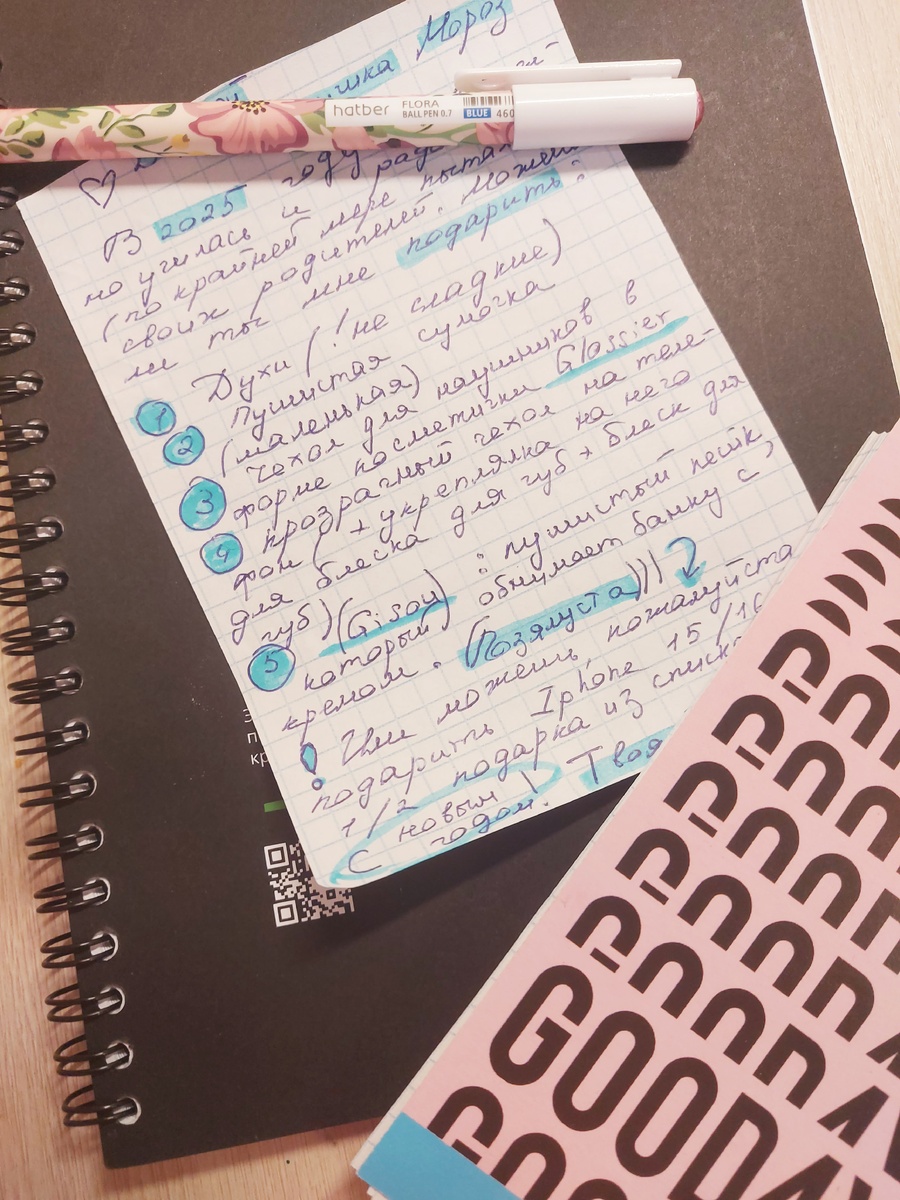 Мороз
ушка
hatber FLORA
BALL PEN 0.7 BLUE 460
В 2025 году
но училась и
(по крайней мере пыталась
своих родителей. Можешь
ли ты мне подарить:
1 Духи (!не сладкие)
2 Пушистая сумочка
(маленькая)
3 Чехол для наушников в
форме косметички Glossier
4 прозрачный чехол на теле-
фон (+ укреплялка на него
для блеска для губ + блеск для
губ) (Gisou)
5 : пушистый пейк,
который обнимает банку с
кремом. (Позялуста)))
! Или можешь пожалуйста
подарить Iphone 15/16
1/2 подарка из списка
С новым Твоя
годом!
GOOD